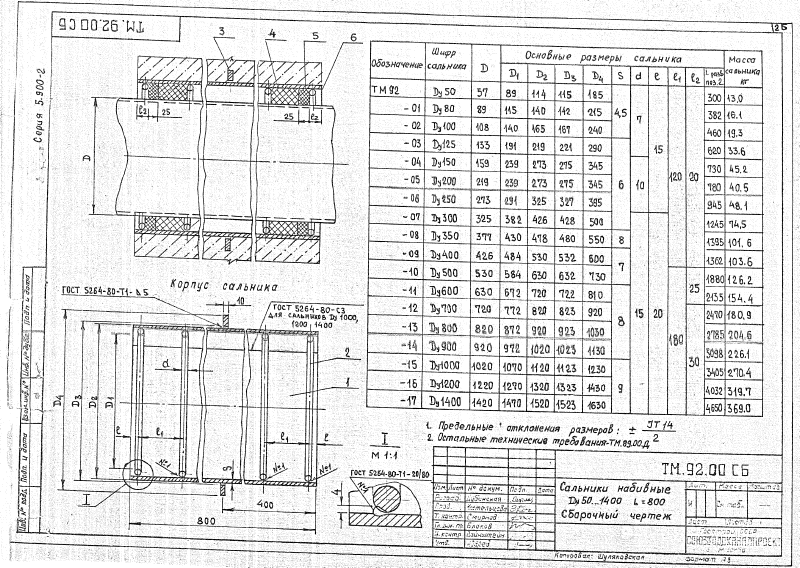 ТМ.92.00 СБ
25
Серия 5.900-2
3 4 5 6
ℓ2 25 25 ℓ2
D
Корпус сальника
ГОСТ 5264-80-Т1-Δ5
10
ГОСТ 5264-80-С3
для сальников Dу 1000,
1200, 1400
D4 D3 D2 D1
d
2
1
ℓ ℓ1 ℓ1 ℓ
№1 №1 №1
S
I
400
800
I
М 1:1
ГОСТ 5264-80-Т1-20/80
№1
4
Обозначение Шифр сальника D Основные размеры сальника Масса сальника кг
D1 D2 D3 D4 S d ℓ ℓ1 ℓ2 L разв. поз.2
ТМ 92 Dу 50 57 89 114 115 185 4,5 7 15 120 20 300 13.0
-01 Dу 80 89 115 140 142 215 382 16.1
-02 Dу 100 108 140 165 167 240 460 19.3
-03 Dу 125 133 191 219 221 290 6 10 620 33.6
-04 Dу 150 159 239 273 275 345 730 45.2
-05 Dу 200 219 239 273 275 345 780 40.5
-06 Dу 250 273 291 325 327 395 945 48.1
-07 Dу 300 325 382 426 428 500 15 20 1245 74,5
-08 Dу 350 377 430 478 480 550 8 1395 101.6
-09 Dу 400 426 484 530 532 600 7 1562 103.6
-10 Dу 500 530 584 630 632 730 180 25 1880 126.2
-11 Dу 600 630 672 720 722 810 8 2135 154.4
-12 Dу 700 720 772 820 823 920 30 2470 180,9
-13 Dу 800 820 872 920 923 1030 2785 204.6
-14 Dу 900 920 972 1020 1023 1130 3098 226.1
-15 Dу 1000 1020 1070 1120 1123 1230 9 3405 270.4
-16 Dу 1200 1220 1270 1320 1323 1430 4032 319.7
-17 Dу 1400 1420 1470 1520 1523 1630 4650 369.0
1. Предельные отклонения размеров: ± JT14/2
2. Остальные технические требования-ТМ.89.00Д
ТМ.92.00 СБ
Сальники набивные
Dу 50...1400 L=800
Сборочный чертеж
Изм. Лист № докум. Подп. Дата
Т. контр. Смирнов
Н. контр
Утв.
Лит. Масса Масштаб
Лист
Копировал: Шуляковская
Формат А3
Инв. № подл. Подп. и дата
Подп. и дата